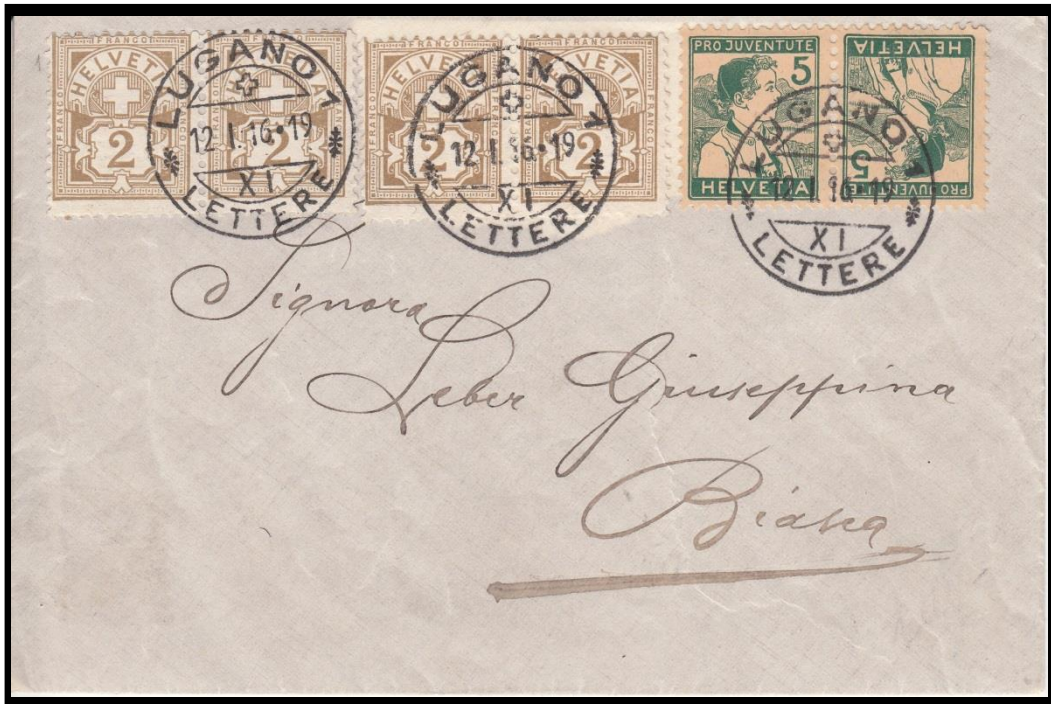 FRANCO
HELVETIA
2
FRANCO
HELVETIA
2
LUGANO 1
12.I.16•19
XI
LETTERE
FRANCO
HELVETIA
2
FRANCO
HELVETIA
2
LUGANO 1
12.I.16•19
XI
LETTERE
PRO JUVENTUTE
5
HELVETIA
PRO JUVENTUTE
5
HELVETIA
LUGANO 1
12.I.16•19
XI
LETTERE
Signora
Leber Giuseppina
Biasca